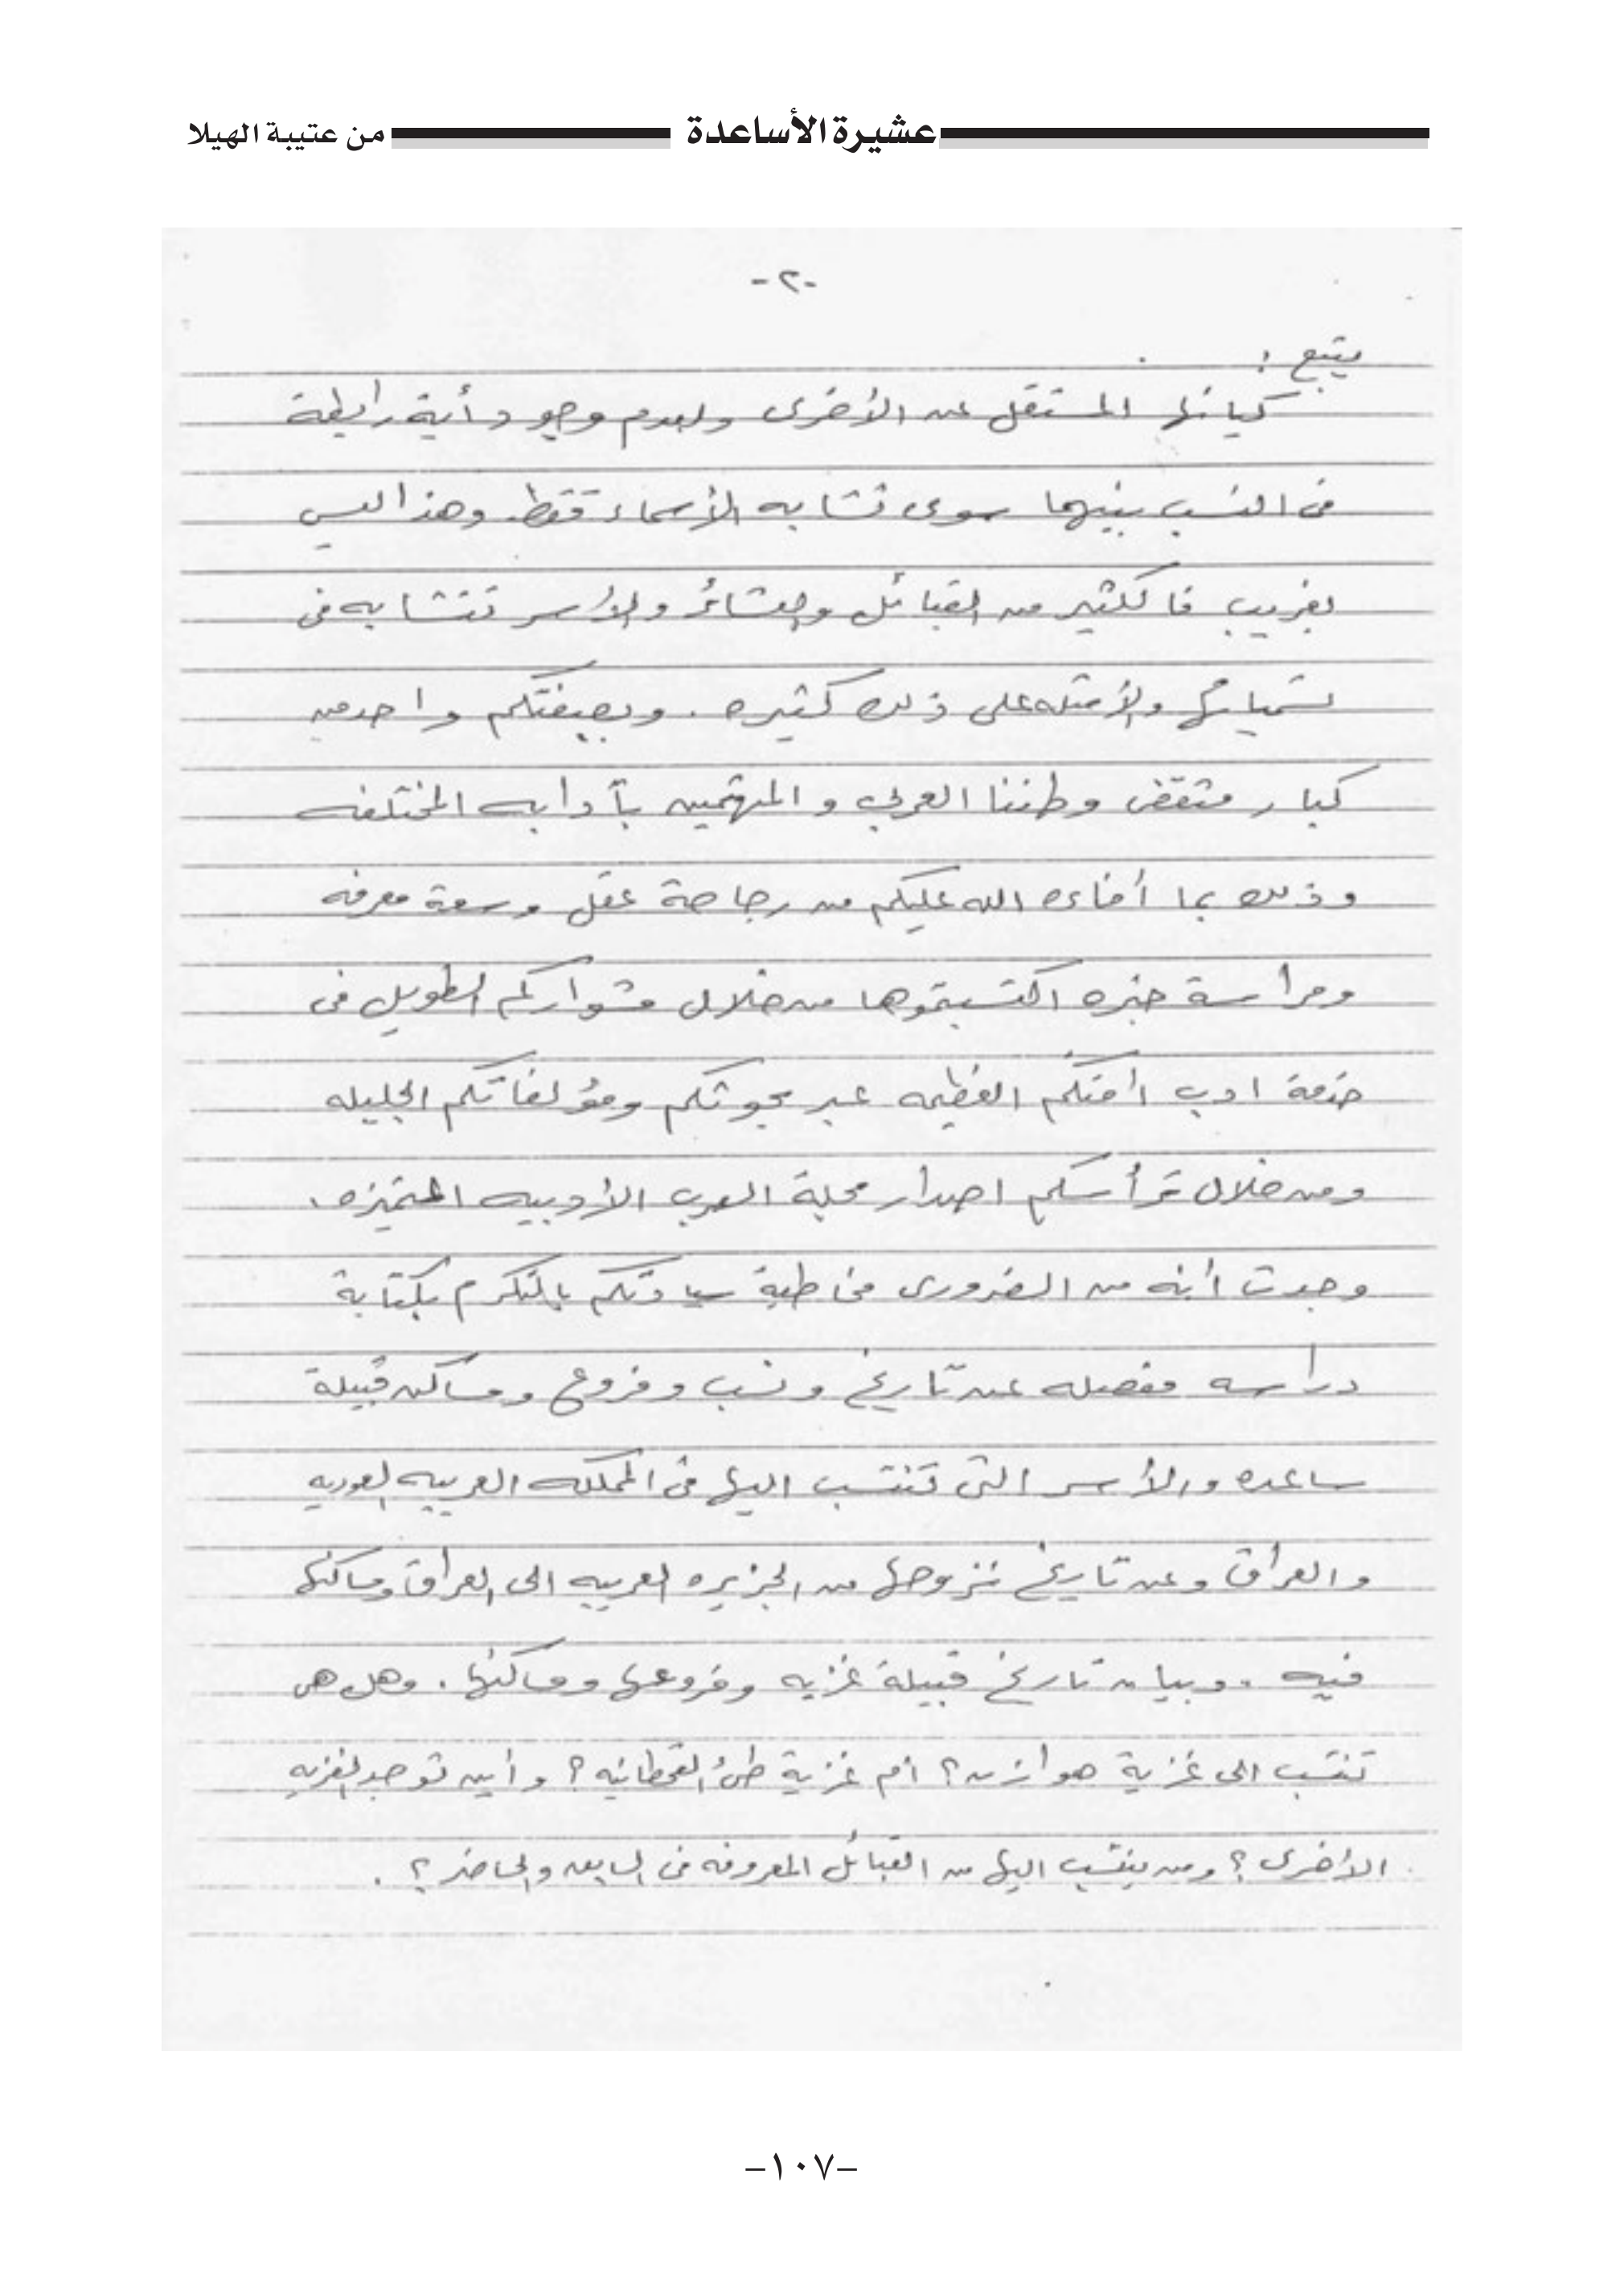 عشيرة الأساعدة من عتيبة الهيلا
-٢-
يتبع :
كيانها المستقل عن الأخرى ولعدم وجود أية رابطة
في النسب بينهما سوى تشابه الأسماء فقط. وهذا ليس
بغريب فالكثير من القبائل والعشائر والأسر تتشابه في
تسمياتها والأمثله على ذلك كثيره . وبصفتكم واحد من
كبار مثقفي وطننا العربي والمهتمين بآدابه المختلفه
وذلك بما أفاءه الله عليكم من رجاحة عقل وسعة معرفه
ومراسة خبره اكتسبتموها من خلال مشواركم الطويل في
خدمة ادب أمتكم العظيمه عبر بحوثكم ومؤلفاتكم الجليله
ومن خلال ترأسكم اصدار مجلة العرب الأدبيه المتميزه .
وجدت أنه من الضروري مخاطبة سيادتكم بالتكرم بكتابة
دراسه مفصله عن تاريخ ونسب وفروع ومساكن قبيلة
ساعده والأسر التي تنتسب اليها في المملكه العربيه السعوديه
والعراق وعن تاريخ نزوحها من الجزيره العربيه الى العراق ومساكنها
فيه . وبيان تاريخ قبيلة غزيه وفروعها ومساكنها . وهل هي
تنتسب الى غزية هوازن ؟ أم غزية طئ القحطانيه ؟ وأين توجد الغزيه
الأخرى ؟ ومن ينتسب اليها من القبائل المعروفه في السابق والحاضر ؟ .
-١٠٧-